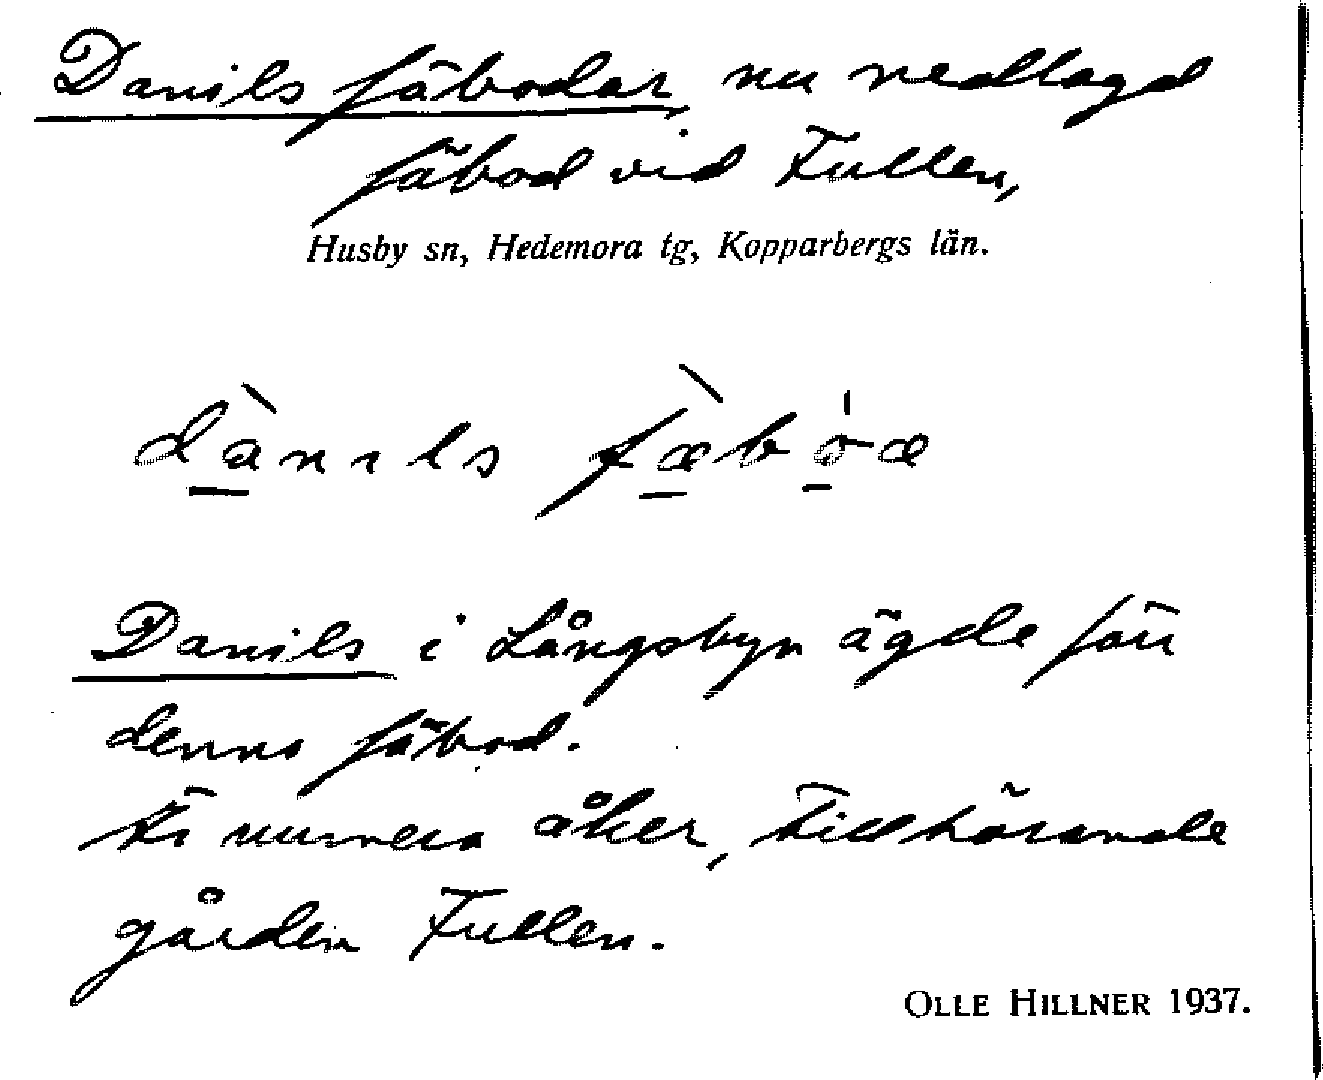 Danils fäbodar, nu nedlagd
fäbod vid Fullen,
Husby sn, Hedemora tg, Kopparbergs län.
dànıls fæ̀bóæ
Danils i Långsbyn ägde förr
denna fäbod.
Är numera åker, tillhörande
gården Fullen.
OLLE HILLNER 1937.